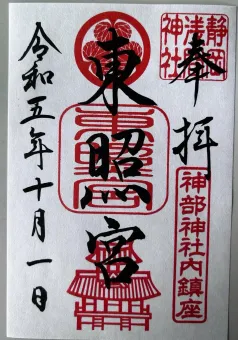 奉拝
静岡
浅間
神社
神部神社内鎮座
東照宮
令和五年十月一日